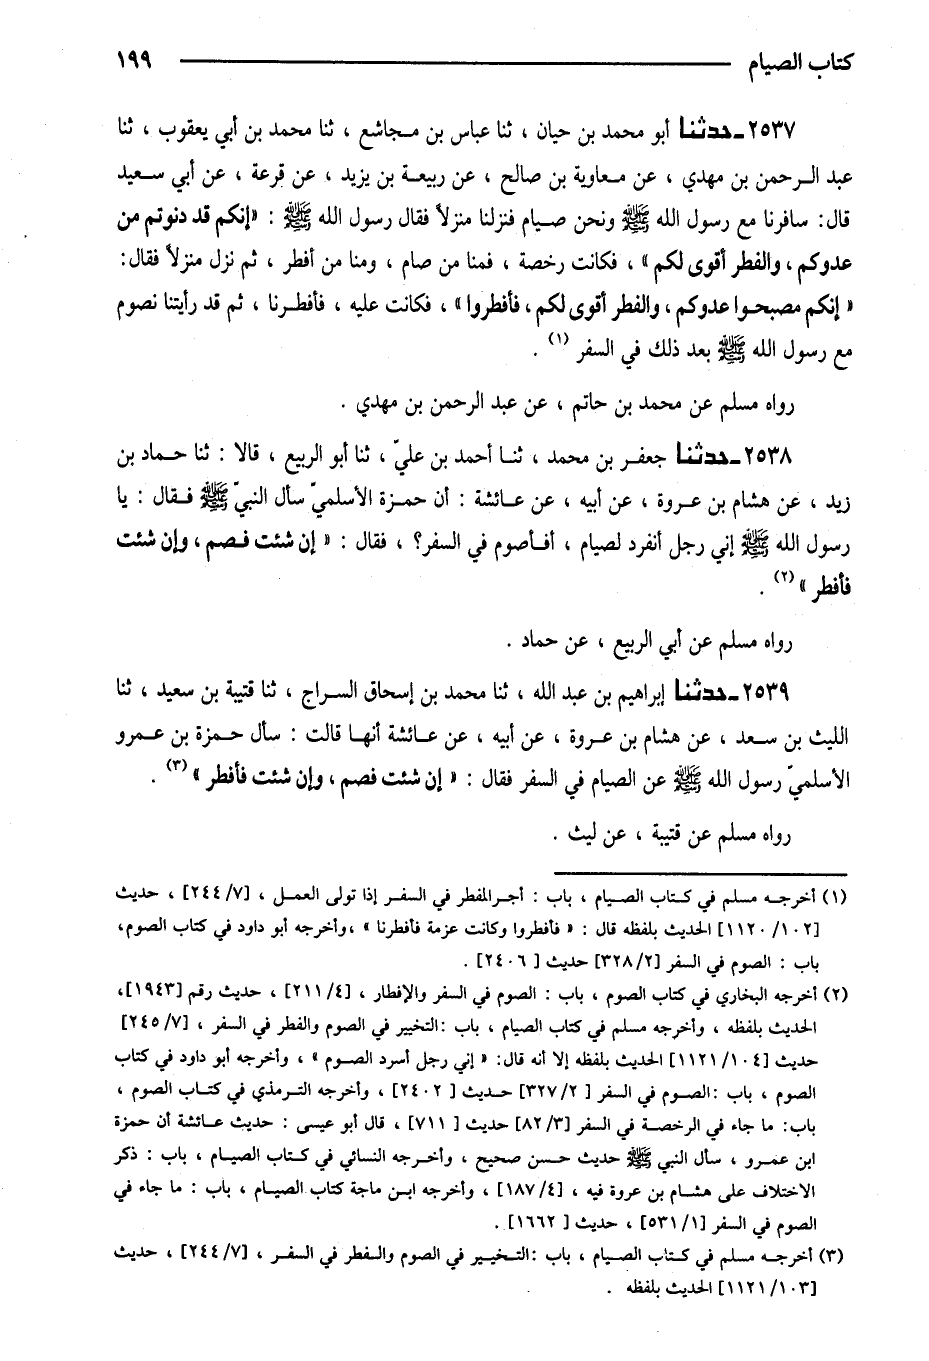 كتاب الصيام ١٩٩
٢٥٣٧ـ حدثنا أبو محمد بن حيان ، ثنا عباس بن مجاشع ، ثنا محمد بن أبي يعقوب ، ثنا
عبد الرحمن بن مهدي ، عن معاوية بن صالح ، عن ربيعة بن يزيد ، عن قزعة ، عن أبي سعيد
قال: سافرنا مع رسول الله ﷺ ونحن صيام فنزلنا منزلاً فقال رسول الله ﷺ : «إنكم قد دنوتم من
عدوكم ، والفطر أقوى لكم» ، فكانت رخصة ، فمنا من صام ، ومنا من أفطر ، ثم نزل منزلاً فقال:
« إنكم مصبحوا عدوكم ، والفطر أقوى لكم ، فأفطروا» ، فكانت عليه ، فأفطرنا ، ثم قد رأيتنا نصوم
مع رسول الله ﷺ بعد ذلك في السفر (١) .
رواه مسلم عن محمد بن حاتم ، عن عبد الرحمن بن مهدي .
٢٥٣٨ـ حدثنا جعفر بن محمد ، ثنا أحمد بن عليّ ، ثنا أبو الربيع ، قالا : ثنا حماد بن
زيد ، عن هشام بن عروة ، عن أبيه ، عن عائشة : أن حمزة الأسلميّ سأل النبيّ ﷺ فقال : يا
رسول الله ﷺ إني رجل أنفرد لصيام ، أفأصوم في السفر؟ ، فقال : « إن شئت فصم ، وإن شئت
فأفطر » (٢) .
رواه مسلم عن أبي الربيع ، عن حماد .
٢٥٣٩ـ حدثنا إبراهيم بن عبد الله ، ثنا محمد بن إسحاق السراج ، ثنا قتيبة بن سعيد ، ثنا
الليث بن سعد ، عن هشام بن عروة ، عن أبيه ، عن عائشة أنها قالت : سأل حمزة بن عمرو
الأسلميّ رسول الله ﷺ عن الصيام في السفر فقال : « إن شئت فصم ، وإن شئت فأفطر » (٣) .
رواه مسلم عن قتيبة ، عن ليث .
(١) أخرجه مسلم في كتاب الصيام ، باب : أجر المفطر في السفر إذا تولى العمل ، [٧/ ٢٤٤] ، حديث
[١٠٢/ ١١٢٠] الحديث بلفظه قال : « فأفطروا وكانت عزمة فأفطرنا » ،وأخرجه أبو داود في كتاب الصوم،
باب : الصوم في السفر [٢/ ٣٢٨] حديث [ ٢٤٠٦] .
(٢) أخرجه البخاري في كتاب الصوم ، باب : الصوم في السفر والإفطار ، [٤/ ٢١١] ، حديث رقم [١٩٤٣]،
الحديث بلفظه ، وأخرجه مسلم في كتاب الصيام ، باب :التخيير في الصوم والفطر في السفر ، [٧/ ٢٤٥]
حديث [١٠٤/ ١١٢١] الحديث بلفظه إلا أنه قال: « إني رجل أسرد الصوم » ، وأخرجه أبو داود في كتاب
الصوم ، باب :الصوم في السفر [ ٢/ ٣٢٧] حديث [ ٢٤٠٢] ، وأخرجه الترمذي في كتاب الصوم ،
باب: ما جاء في الرخصة في السفر [٣/ ٨٢] حديث [ ٧١١] ، قال أبو عيسى : حديث عائشة أن حمزة
ابن عمرو ، سأل النبي ﷺ حديث حسن صحيح ، وأخرجه النسائي في كتاب الصيام ، باب : ذكر
الاختلاف على هشام بن عروة فيه ، [٤/ ١٨٧] ، وأخرجه ابن ماجة كتاب الصيام ، باب : ما جاء في
الصوم في السفر [١/ ٥٣١] ، حديث [ ١٦٦٢] .
(٣) أخرجه مسلم في كتاب الصيام ، باب :التخيير في الصوم والفطر في السفر ، [٧/ ٢٤٤] ، حديث
[١٠٣/ ١١٢١] الحديث بلفظه .